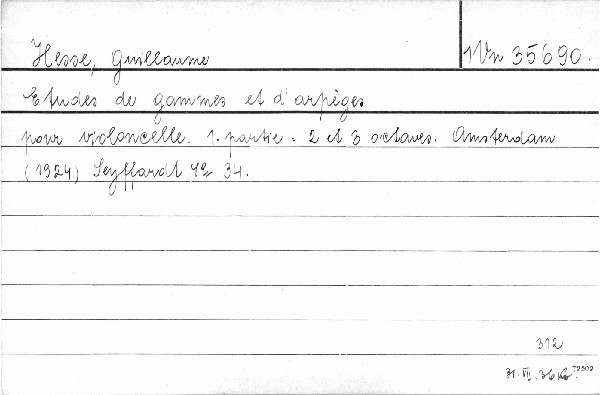 Hesse, Guillaume
Mn 35690.
Etudes de gammes et d'arpèges
pour violoncelle. 1. partie: 2 et 3 octaves. Amsterdam
(1924) Seyffardt 4° 34.
312
31. VII. 36
72502